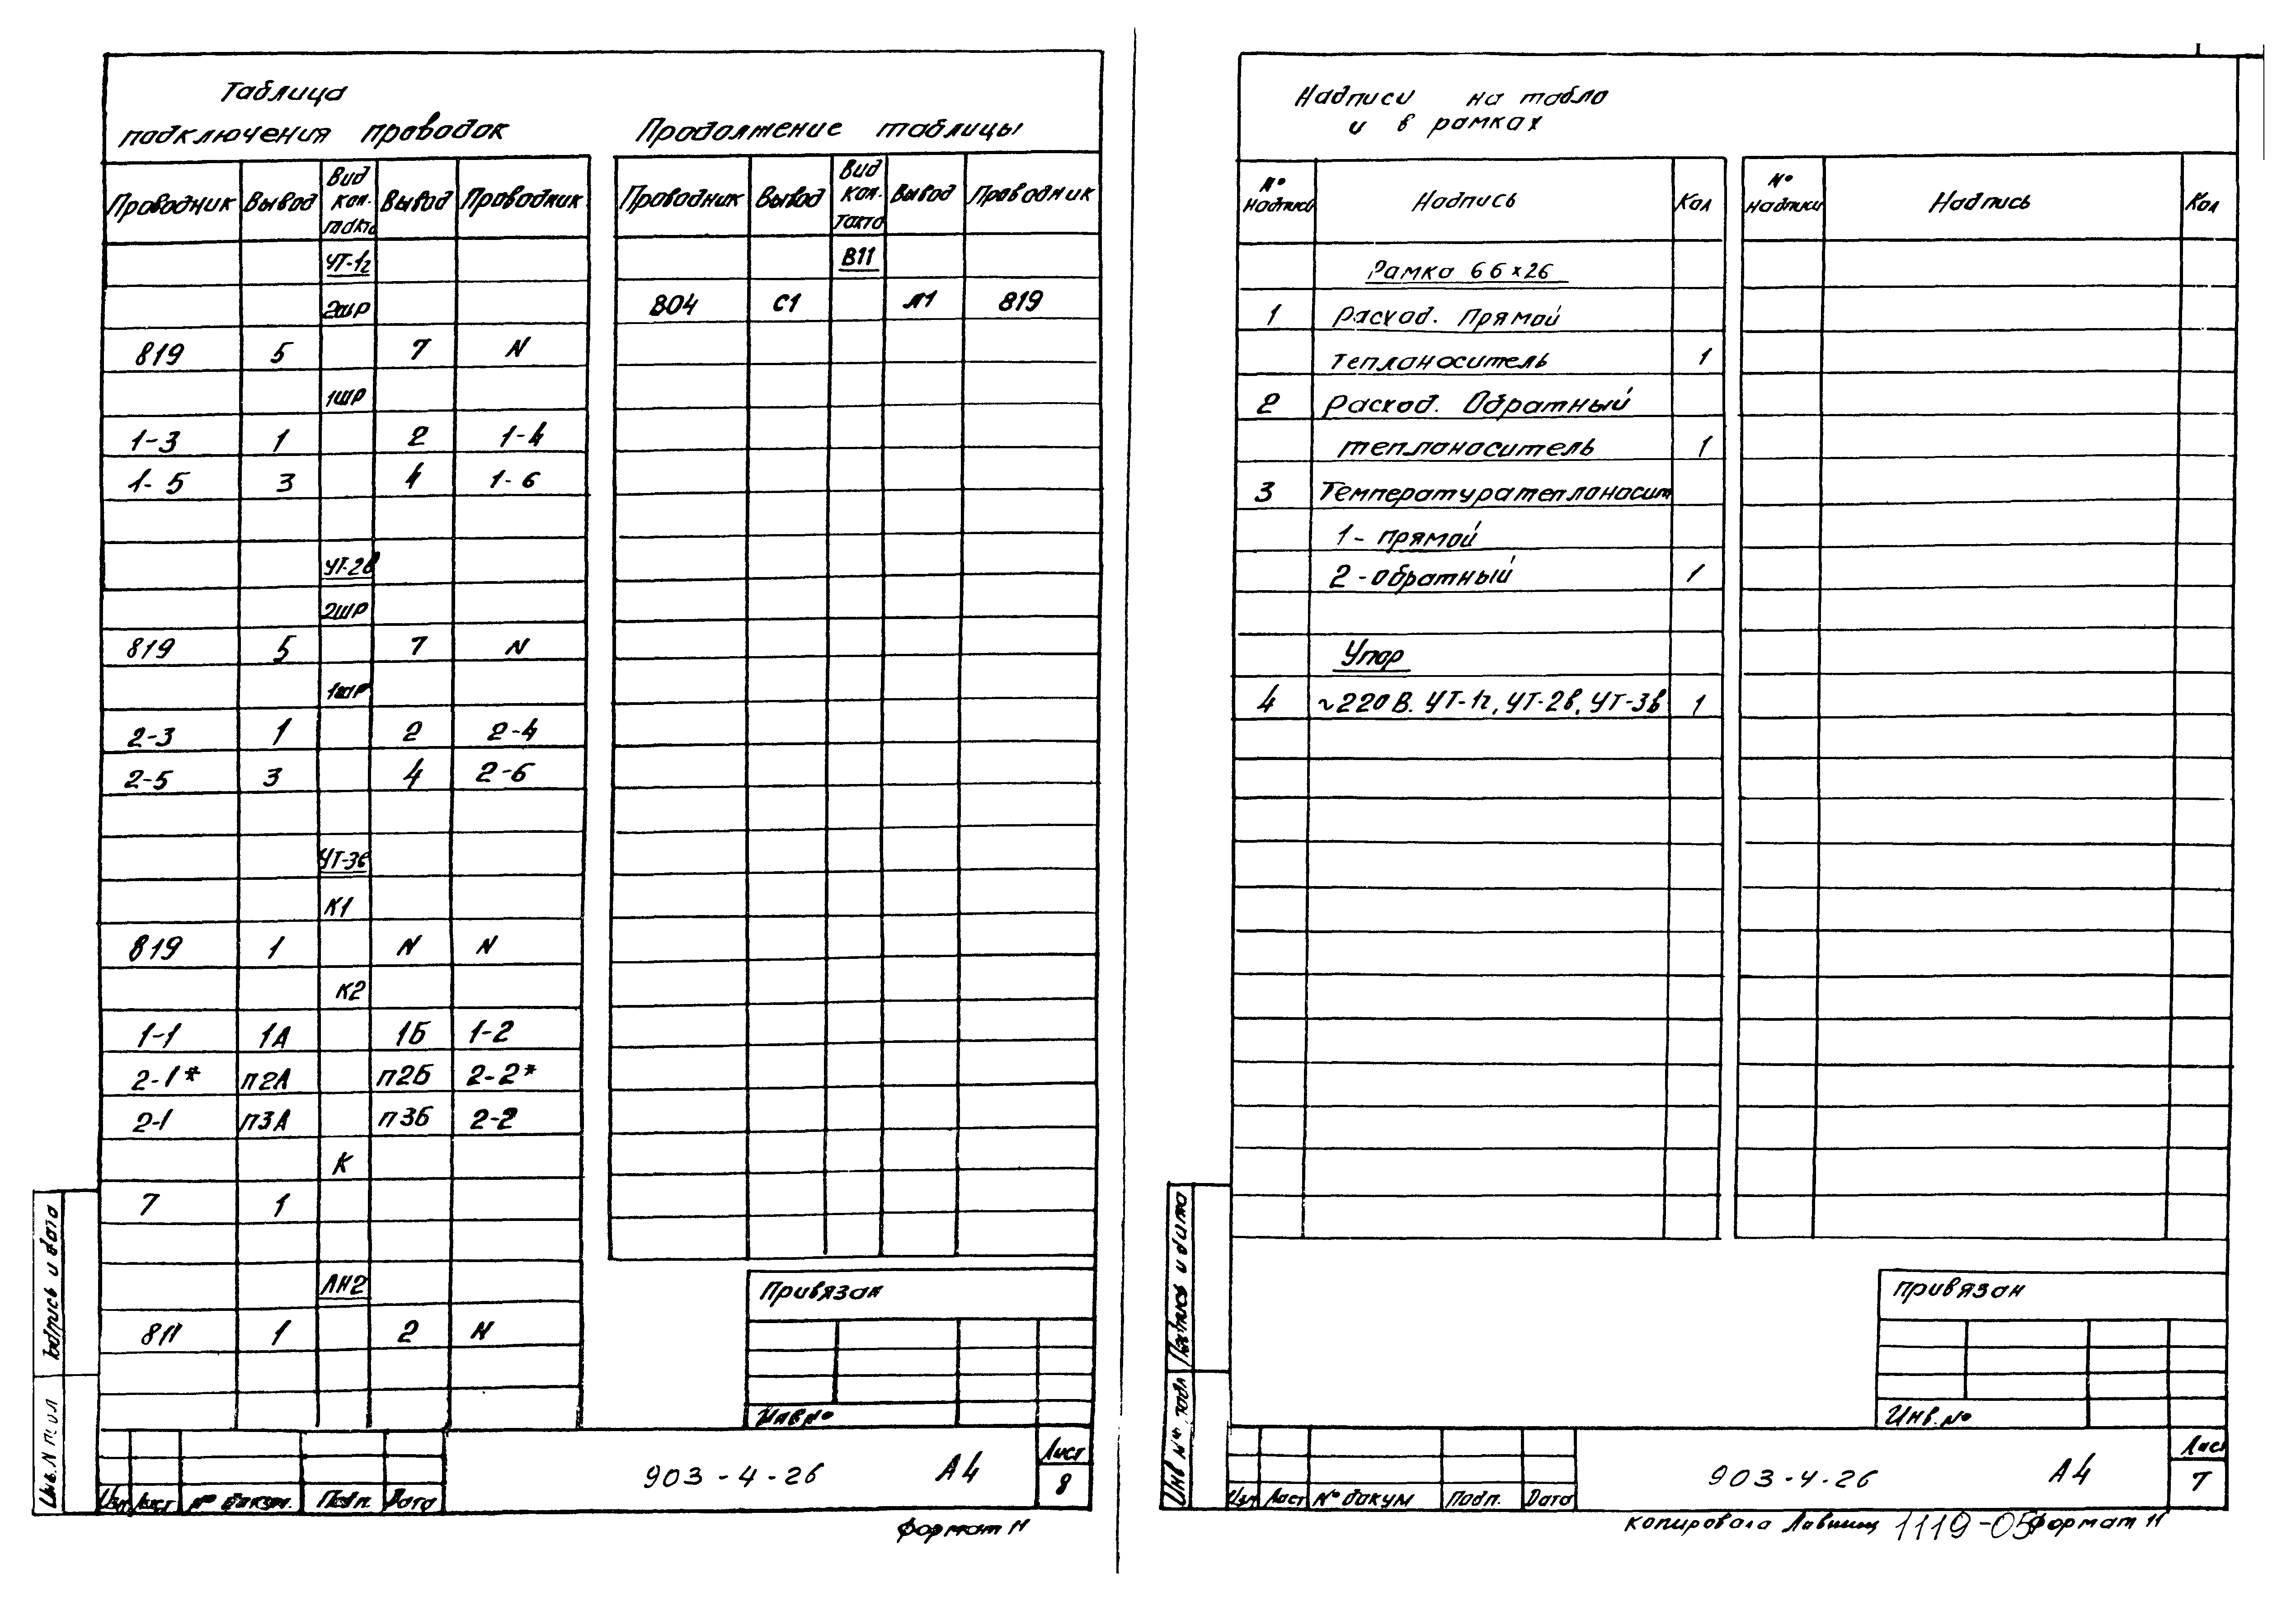 Таблица
подключения проводок
Проводник Вывод Вид кон. такта Вывод Проводник
УТ-1г
2шр
819 5 7 N
1шр
1-3 1 2 1-4
1-5 3 4 1-6
УТ-2в
2шр
819 5 7 N
1шр
2-3 1 2 2-4
2-5 3 4 2-6
УТ-3в
К1
819 1 N N
К2
1-1 1А 1Б 1-2
2-1* п2А п2Б 2-2*
2-1 п3А п3Б 2-2
К
7 1
ЛН2
811 1 2 N
Продолжение таблицы
Проводник Вывод Вид кон. такта Вывод Проводник
В11
804 С1 Л1 819
Привязан
Инв №
Изм Лист № докум. Подп. Дата
903-4-26 А4
Лист
8
Формат 11
Подпись и дата
Инв. N
Надписи на табло
и в рамках
№ надписи Надпись Кол
№ надписи Надпись Кол
Рамка 66х26
1 Расход. Прямой
тепланоситель 1
2 Расход. Обратный
тепланоситель 1
3 Температура тепланосит
1- прямой
2 - обратный 1
Упор
4 ~220 В. УТ-1г, УТ-2в, УТ-3в 1
Привязан
Инв. №
Изм Лист № докум Подп. Дата
903-4-26 А4
Лист
7
копировала 1119-05 Формат 11
Подпись и дата
Инв № подл